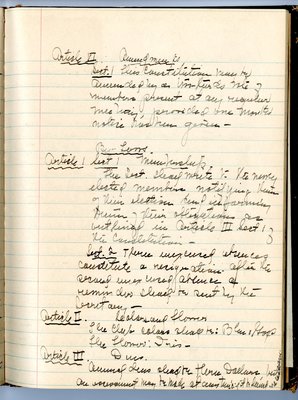 Article VI Amendments
Sect. 1 This Constitution may be
amended by a two-thirds vote of
members present at any regular
meeting, provided one month's
notice has been given —
By-Laws
Article I Sect. 1 Membership.
The Sect. shall write to the newly
elected members notifying them
of their election and informing
them of their obligations as
outlined in Article III Sect. 1 of
the Constitution —
Sect. 2 Three unexcused absences
constitute a resignation. After the
second unexcused absence a
reminder shall be sent by the
Secretary —
Article II. Colors and Flower
The Club colors shall be: Blue &
The Flower: Iris —
Article III Dues.
Annual dues shall be Three Dollars
an assessment may be made at any time